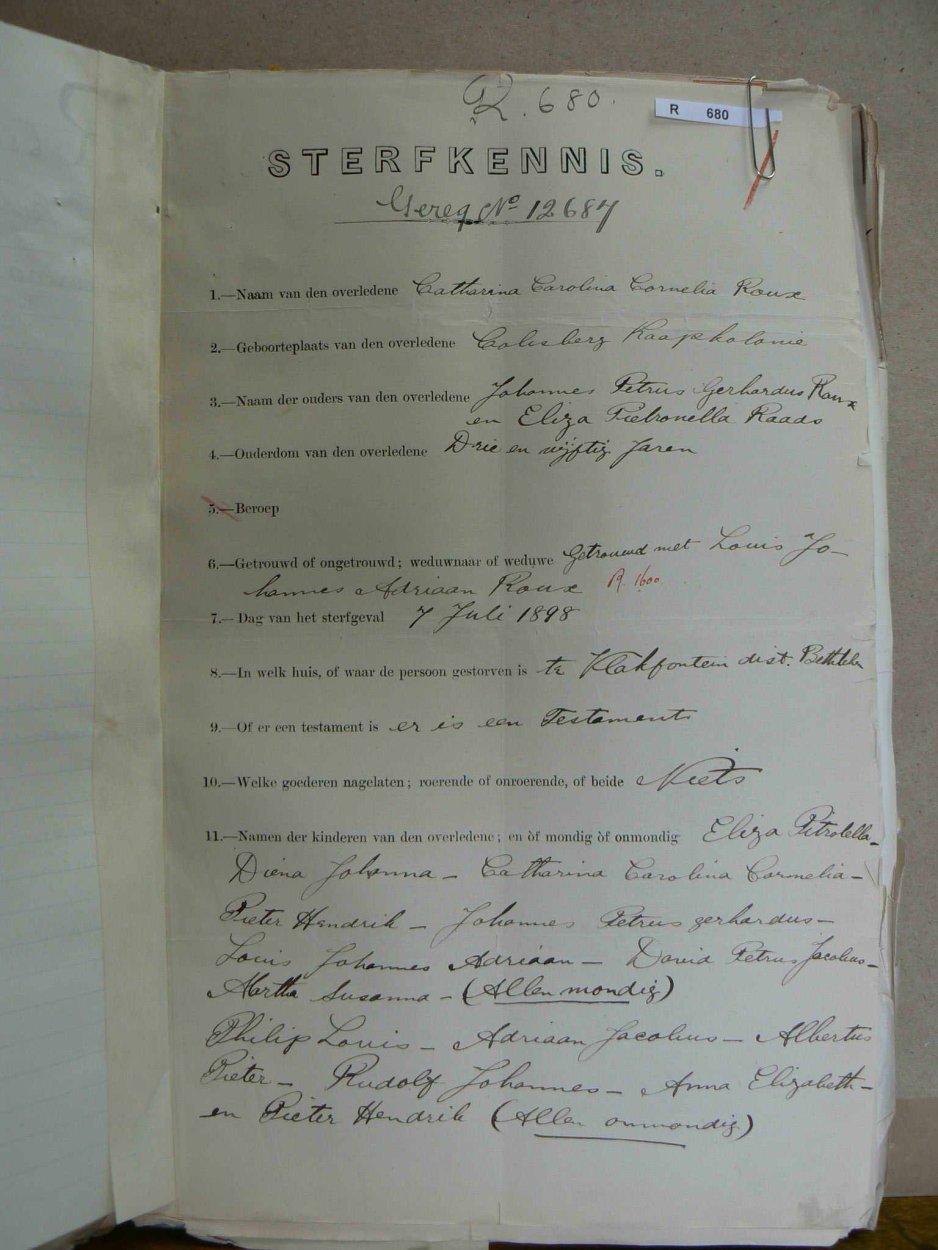 R. 680.
R 680
STERFKENNIS.
Gereg No 12687
1.—Naam van den overledene Catharina Carolina Cornelia Roux
2.—Geboorteplaats van den overledene Colesberg Kaapkolonie
3.—Naam der ouders van den overledene Johannes Petrus Gerhardus Roux
en Eliza Pietronella Raads
4.—Ouderdom van den overledene Drie en vijftig Jaren
5.—Beroep
6.—Getrouwd of ongetrouwd; weduwnaar of weduwe Getrouwd met Louis Jo-
hannes Adriaan Roux R. 1600
7.—Dag van het sterfgeval 7 Juli 1898
8.—In welk huis, of waar de persoon gestorven is te Vlakfontein dist. Bethlehem
9.—Of er een testament is er is een Testament
10.—Welke goederen nagelaten; roerende of onroerende, of beide Niets
11.—Namen der kinderen van den overledene; en òf mondig òf onmondig Eliza Pitrolella—
Diena Johanna — Catharina Carolina Cornelia —
Pieter Hendrik — Johannes Petrus gerhardus —
Louis Johannes Adriaan — David Petrus Jacobus —
Martha Susanna — (Allen mondig)
Philip Louis — Adriaan Jacobus — Albertus
Pieter — Rudolf Johannes — Anna Elizabeth —
en Pieter Hendrik (Allen onmondig)